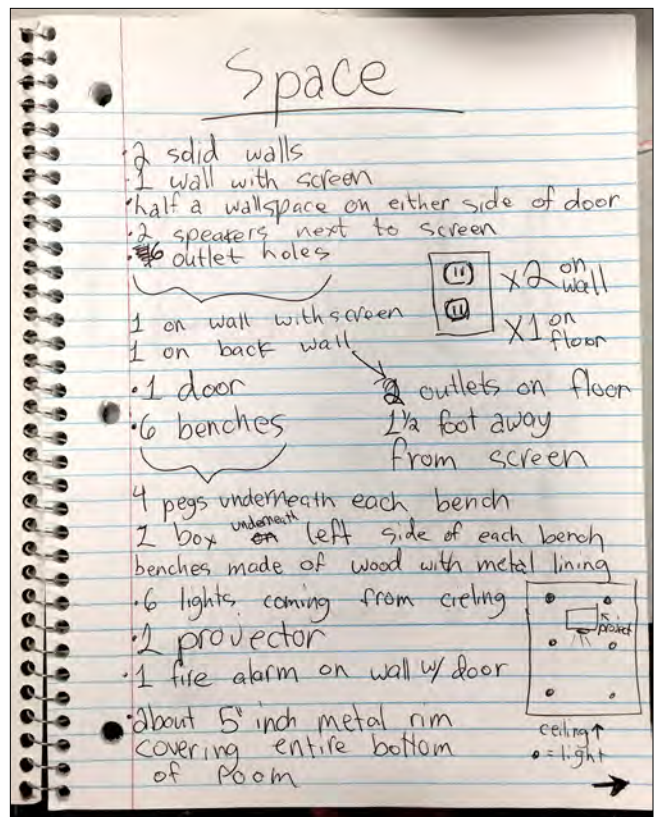 Space
·2 solid walls
·1 wall with screen
·half a wallspace on either side of door
·2 speakers next to screen
·6 outlet holes
x2 on wall
x1 on floor
1 on wall with screen
1 on back wall
2 outlets on floor
1½ foot away
from screen
·1 door
·6 benches
4 pegs underneath each bench
1 box underneath left side of each bench
benches made of wood with metal lining
·6 lights coming from cieling
·1 projector
·1 fire alarm on wall w/ door
·about 5" inch metal rim
covering entire bottom
of room
project
ceiling ↑
o = light
→